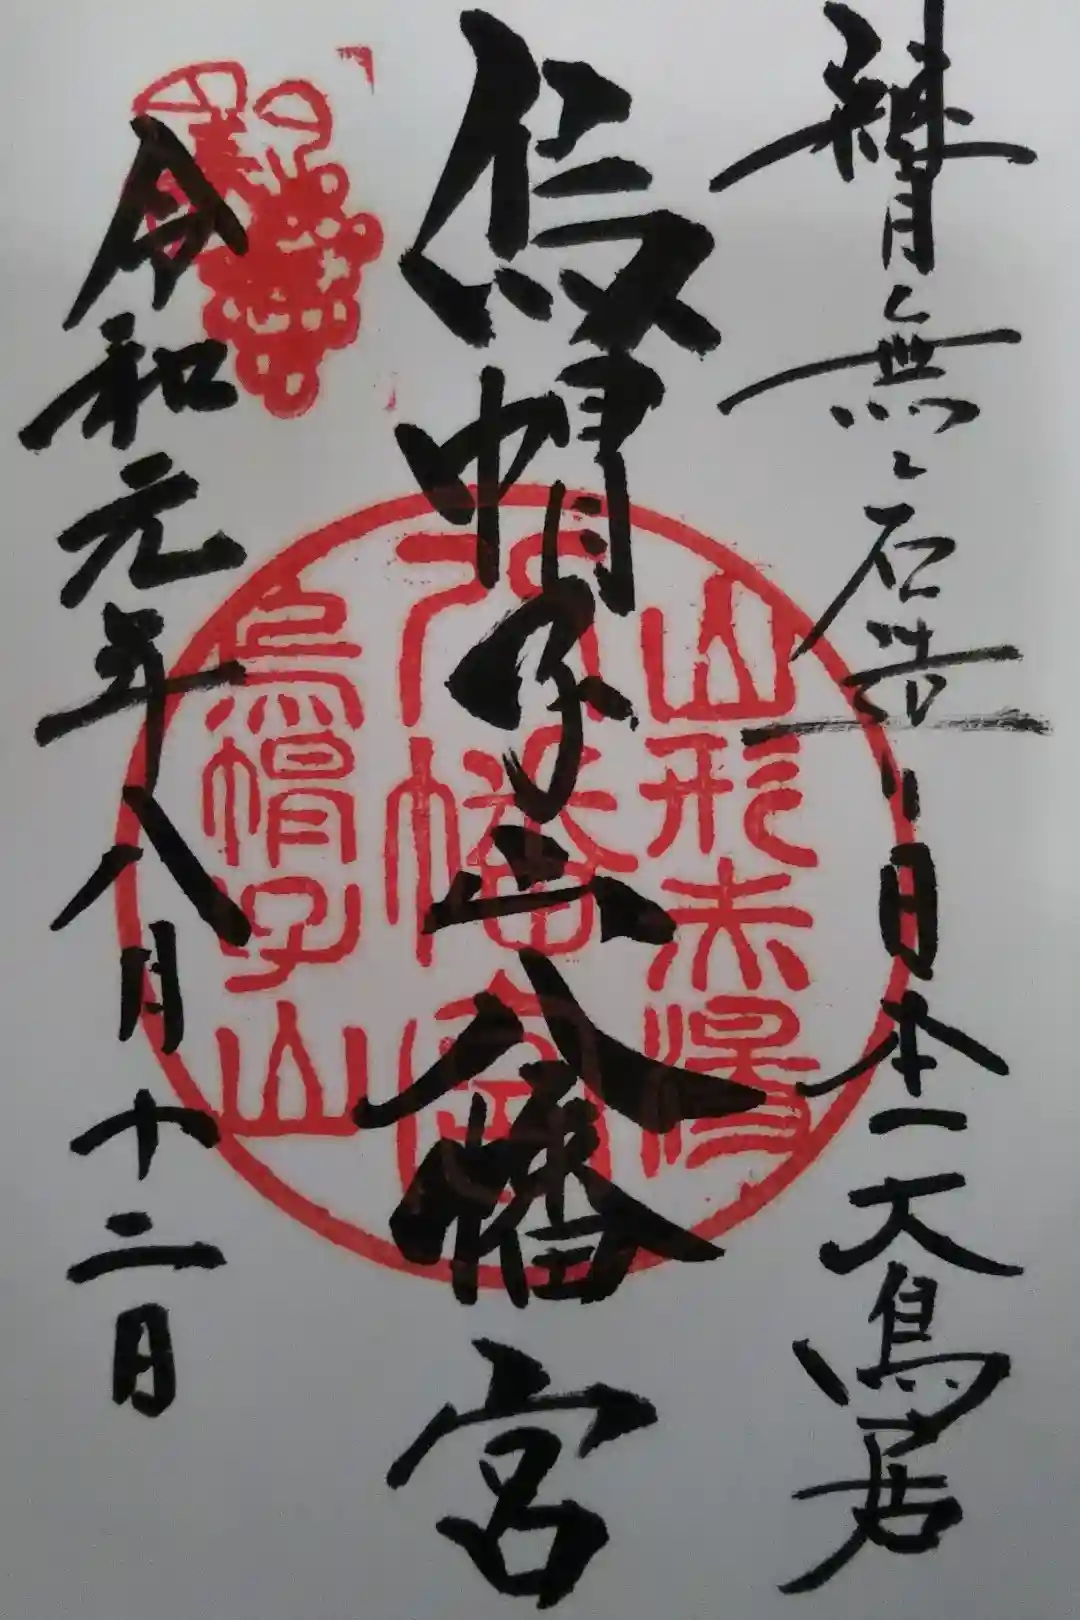 継目無し石造り日本一大鳥居
烏帽子山八幡宮
令和元年八月十二日
山形赤湯
八幡宮
烏帽子山